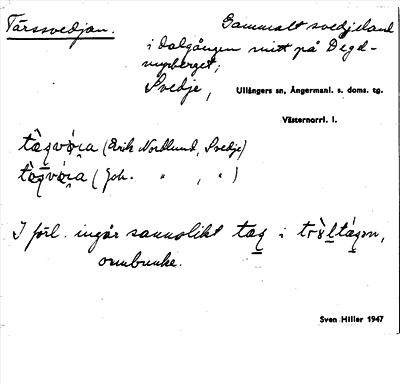 Tårssvedjan. Gammalt svedjeland
i dalgången mitt på Degd-
myrberget;
Svedje, Ullångers sn, Ångermanl. s. doms. tg.
Västernorrl. l.
(Erik Nordlund, Svedje)
(Joh. " , " )
I förl. ingår sannolikt i
ormbunke.
Sven Hiller 1947